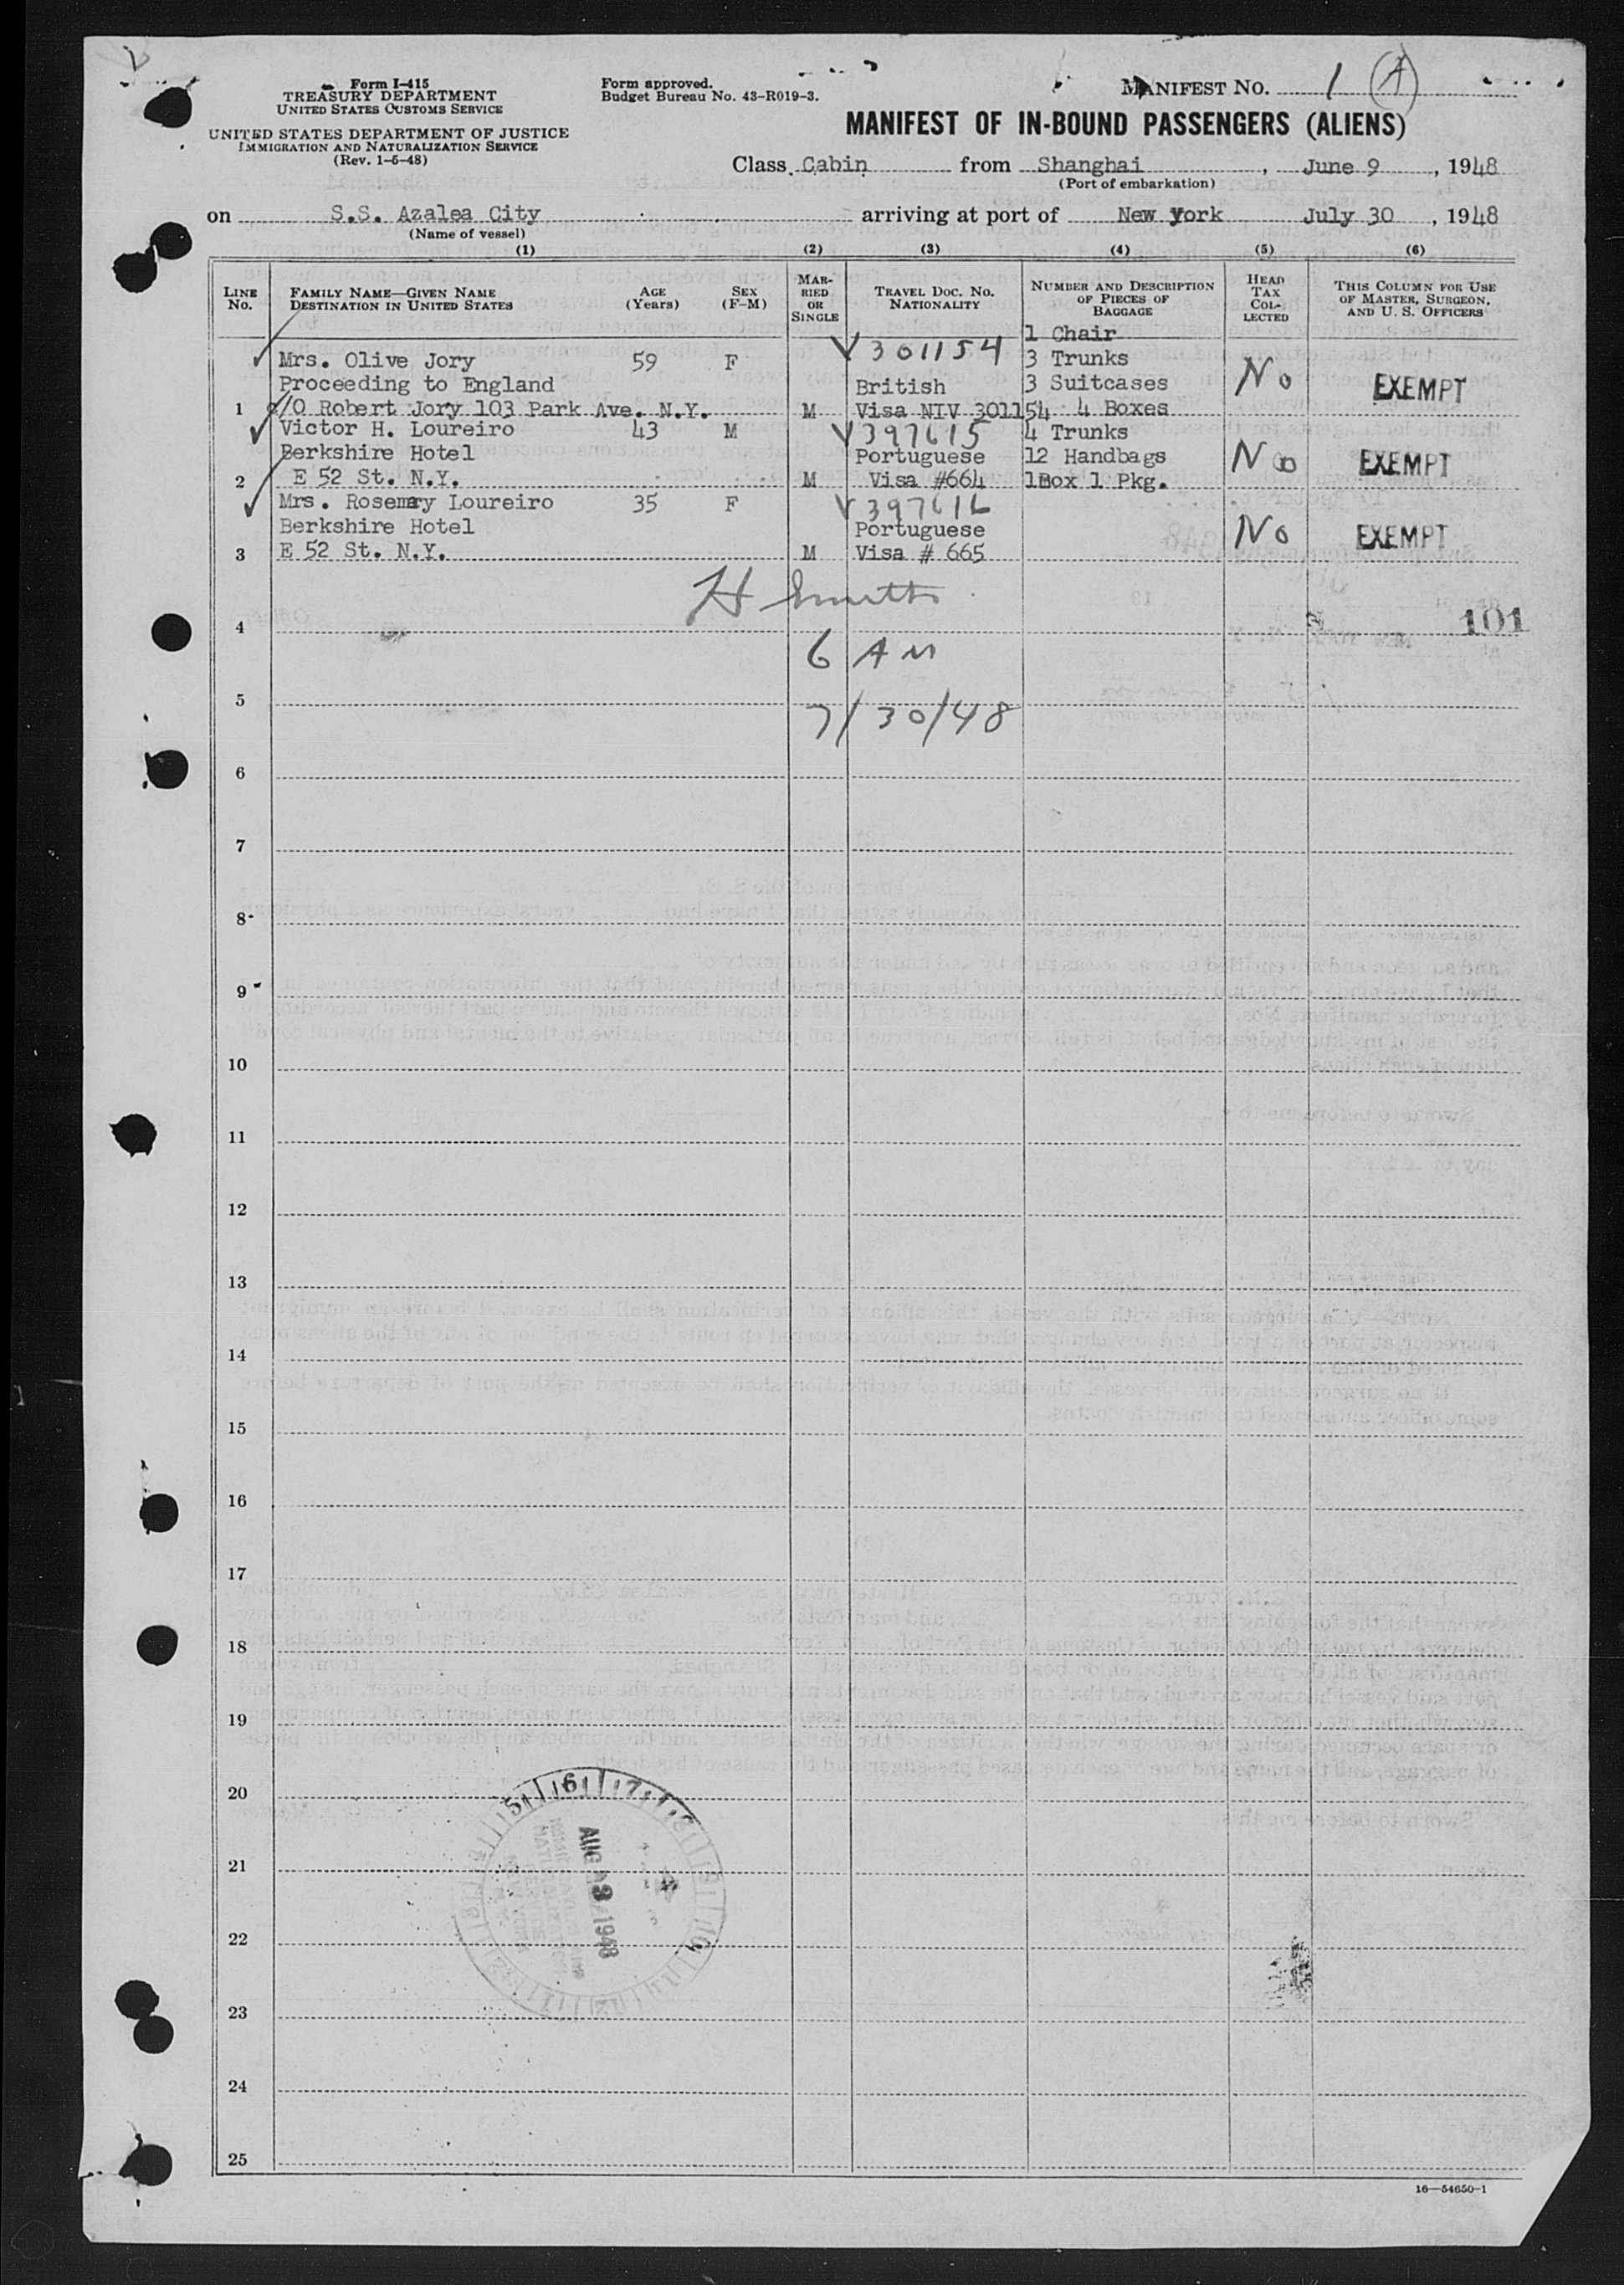 Form I-415
TREASURY DEPARTMENT
UNITED STATES CUSTOMS SERVICE
UNITED STATES DEPARTMENT OF JUSTICE
IMMIGRATION AND NATURALIZATION SERVICE
(Rev. 1-5-48)
Form approved.
Budget Bureau No. 43-R019-3.
MANIFEST NO. 1 (A)
MANIFEST OF IN-BOUND PASSENGERS (ALIENS)
Class Cabin from Shanghai, June 9, 1948
(Port of embarkation)
on S.S. Azalea City arriving at port of New York July 30, 1948
(Name of vessel)
(1) (2) (3) (4) (5) (6)
LINE NO.
FAMILY NAME—GIVEN NAME
DESTINATION IN UNITED STATES
AGE (Years)
SEX (F-M)
MARRIED OR SINGLE
TRAVEL DOC. NO.
NATIONALITY
NUMBER AND DESCRIPTION OF PIECES OF BAGGAGE
HEAD TAX COLLECTED
THIS COLUMN FOR USE OF MASTER, SURGEON, AND U. S. OFFICERS
1 Chair
Mrs. Olive Jory 59 F V301154 3 Trunks
Proceeding to England British 3 Suitcases No EXEMPT
1 c/O Robert Jory 103 Park Ave. N.Y. M Visa NIV 301154 4 Boxes
Victor H. Loureiro 43 M V397615 4 Trunks
Berkshire Hotel Portuguese 12 Handbags No EXEMPT
2 E 52 St. N.Y. M Visa #664 1Box 1 Pkg.
Mrs. Rosemary Loureiro 35 F V397616
Berkshire Hotel Portuguese No EXEMPT
3 E 52 St. N.Y. M Visa # 665
H Smith
101
4
6 AM
5
7/30/48
6
7
8
9
10
11
12
13
14
15
16
17
18
19
20
5 6 7 8
AUG 3 1948
21
22
23
24
25
16—54650-1